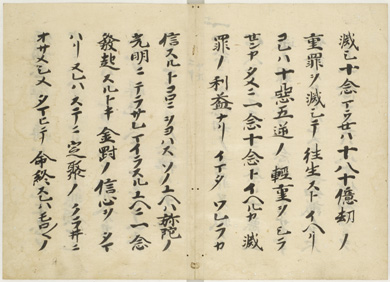 滅シ十念マウセハ十八十億劫ノ
重罪ヲ滅シテ往生ストイヘリ
コレハ十悪五逆ノ軽重ヲシラ
センカタメニ一念十念トイヘルカ滅
罪ノ利益ナリイマタワレラカ
信スルトコロニヲヨハスソノユヘハ弥陀ノ
光明ニテラサレマイラスルユヘニ一念
發起スルトキ金剛ノ信心ヲタマ
ハリヌレハステニ定聚ノクラヰニ
オサメシメタマヒテ命終スレハモロ〳〵ノ